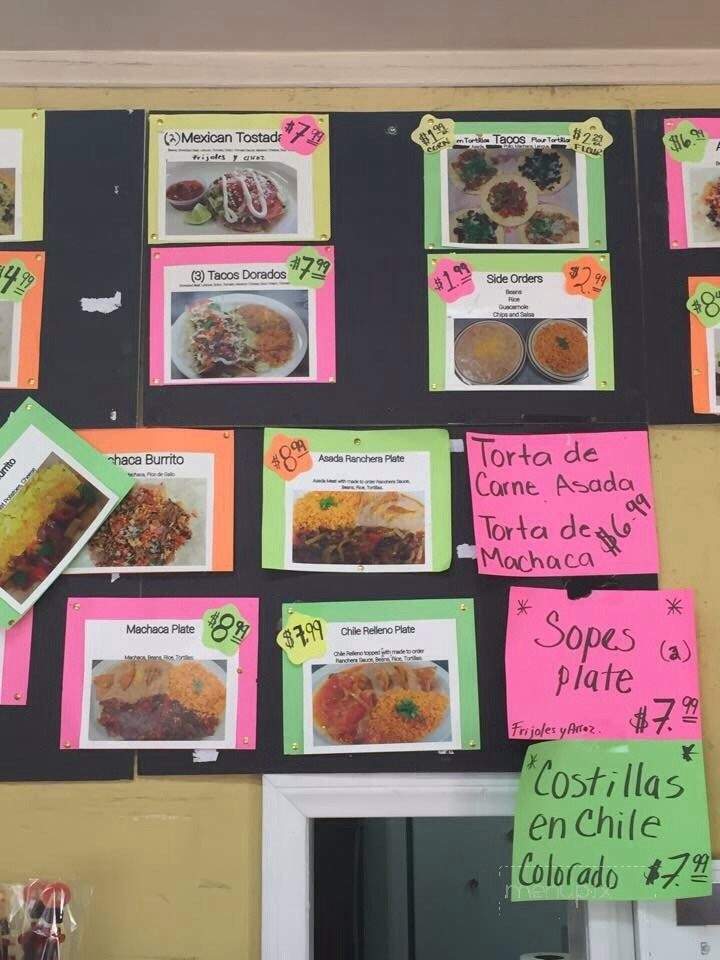 (2) Mexican Tostada
$7.99
frijoles y arroz
$1.99
CORN
Tacos
Flour Tortillas
$2.29
FLOUR
$6.99
$4.99
(3) Tacos Dorados
$7.99
$1.99
Side Orders
$2.99
Beans
Rice
Guacamole
Chips and Salsa
$8
urrito
Potatoes, Cheese
chaca Burrito
Machaca, Pico de Gallo
$8.99
Asada Ranchera Plate
Asada Meat with made to order Ranchera Sauce,
Beans, Rice, Tortillas.
Torta de
Carne Asada
Torta de
Machaca
$6.99
Machaca Plate
$8.99
Machaca, Beans, Rice, Tortillas.
$7.99
Chile Relleno Plate
Chile Relleno topped with made to order
Ranchera Sauce, Beans, Rice, Tortillas.
* *
Sopes
plate
(2)
$7.99
Frijoles y Arroz.
* *
Costillas
en Chile
Colorado $7.99
menupix